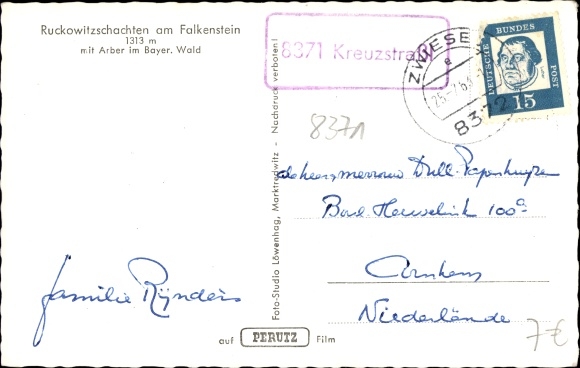 Ruckowitzschachten am Falkenstein
1313 m
mit Arber im Bayer. Wald
8371 Kreuzstraßl
ZWIESEL
8372
DEUTSCHE BUNDESPOST
15
8371
Foto-Studio Löwenhag, Marktredwitz - Nachdruck verboten!
de heer, mevrouw Dull-Papenhuyzen
Bar. Heuvelink 100a
Arnhem
Niederlände
familie Rijnders
auf PERUTZ Film
7€